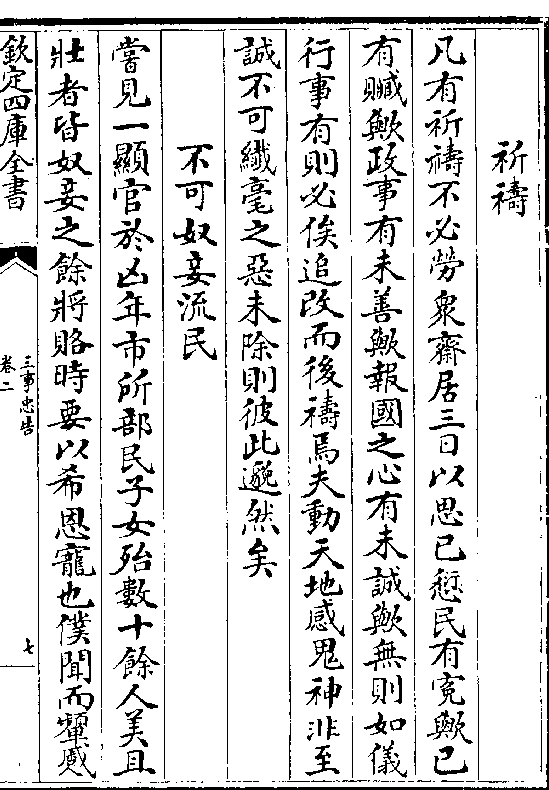 祈禱
凡有祈禱不必勞衆齋居三日以思已愆民有寃歟已
有贓歟政事有未善歟報國之心有未誠歟無則如儀
行事有則必俟追改而後禱焉夫動天地感鬼神非至
誠不可纎毫之惡未除則彼此邈然矣
不可奴妾流民
嘗見一顯官於凶年市所部民子女殆數十餘人美且
壯者皆奴妾之餘將賂時要以希恩寵也僕聞而顰蹙
欽定四庫全書
三事忠告
卷二
七